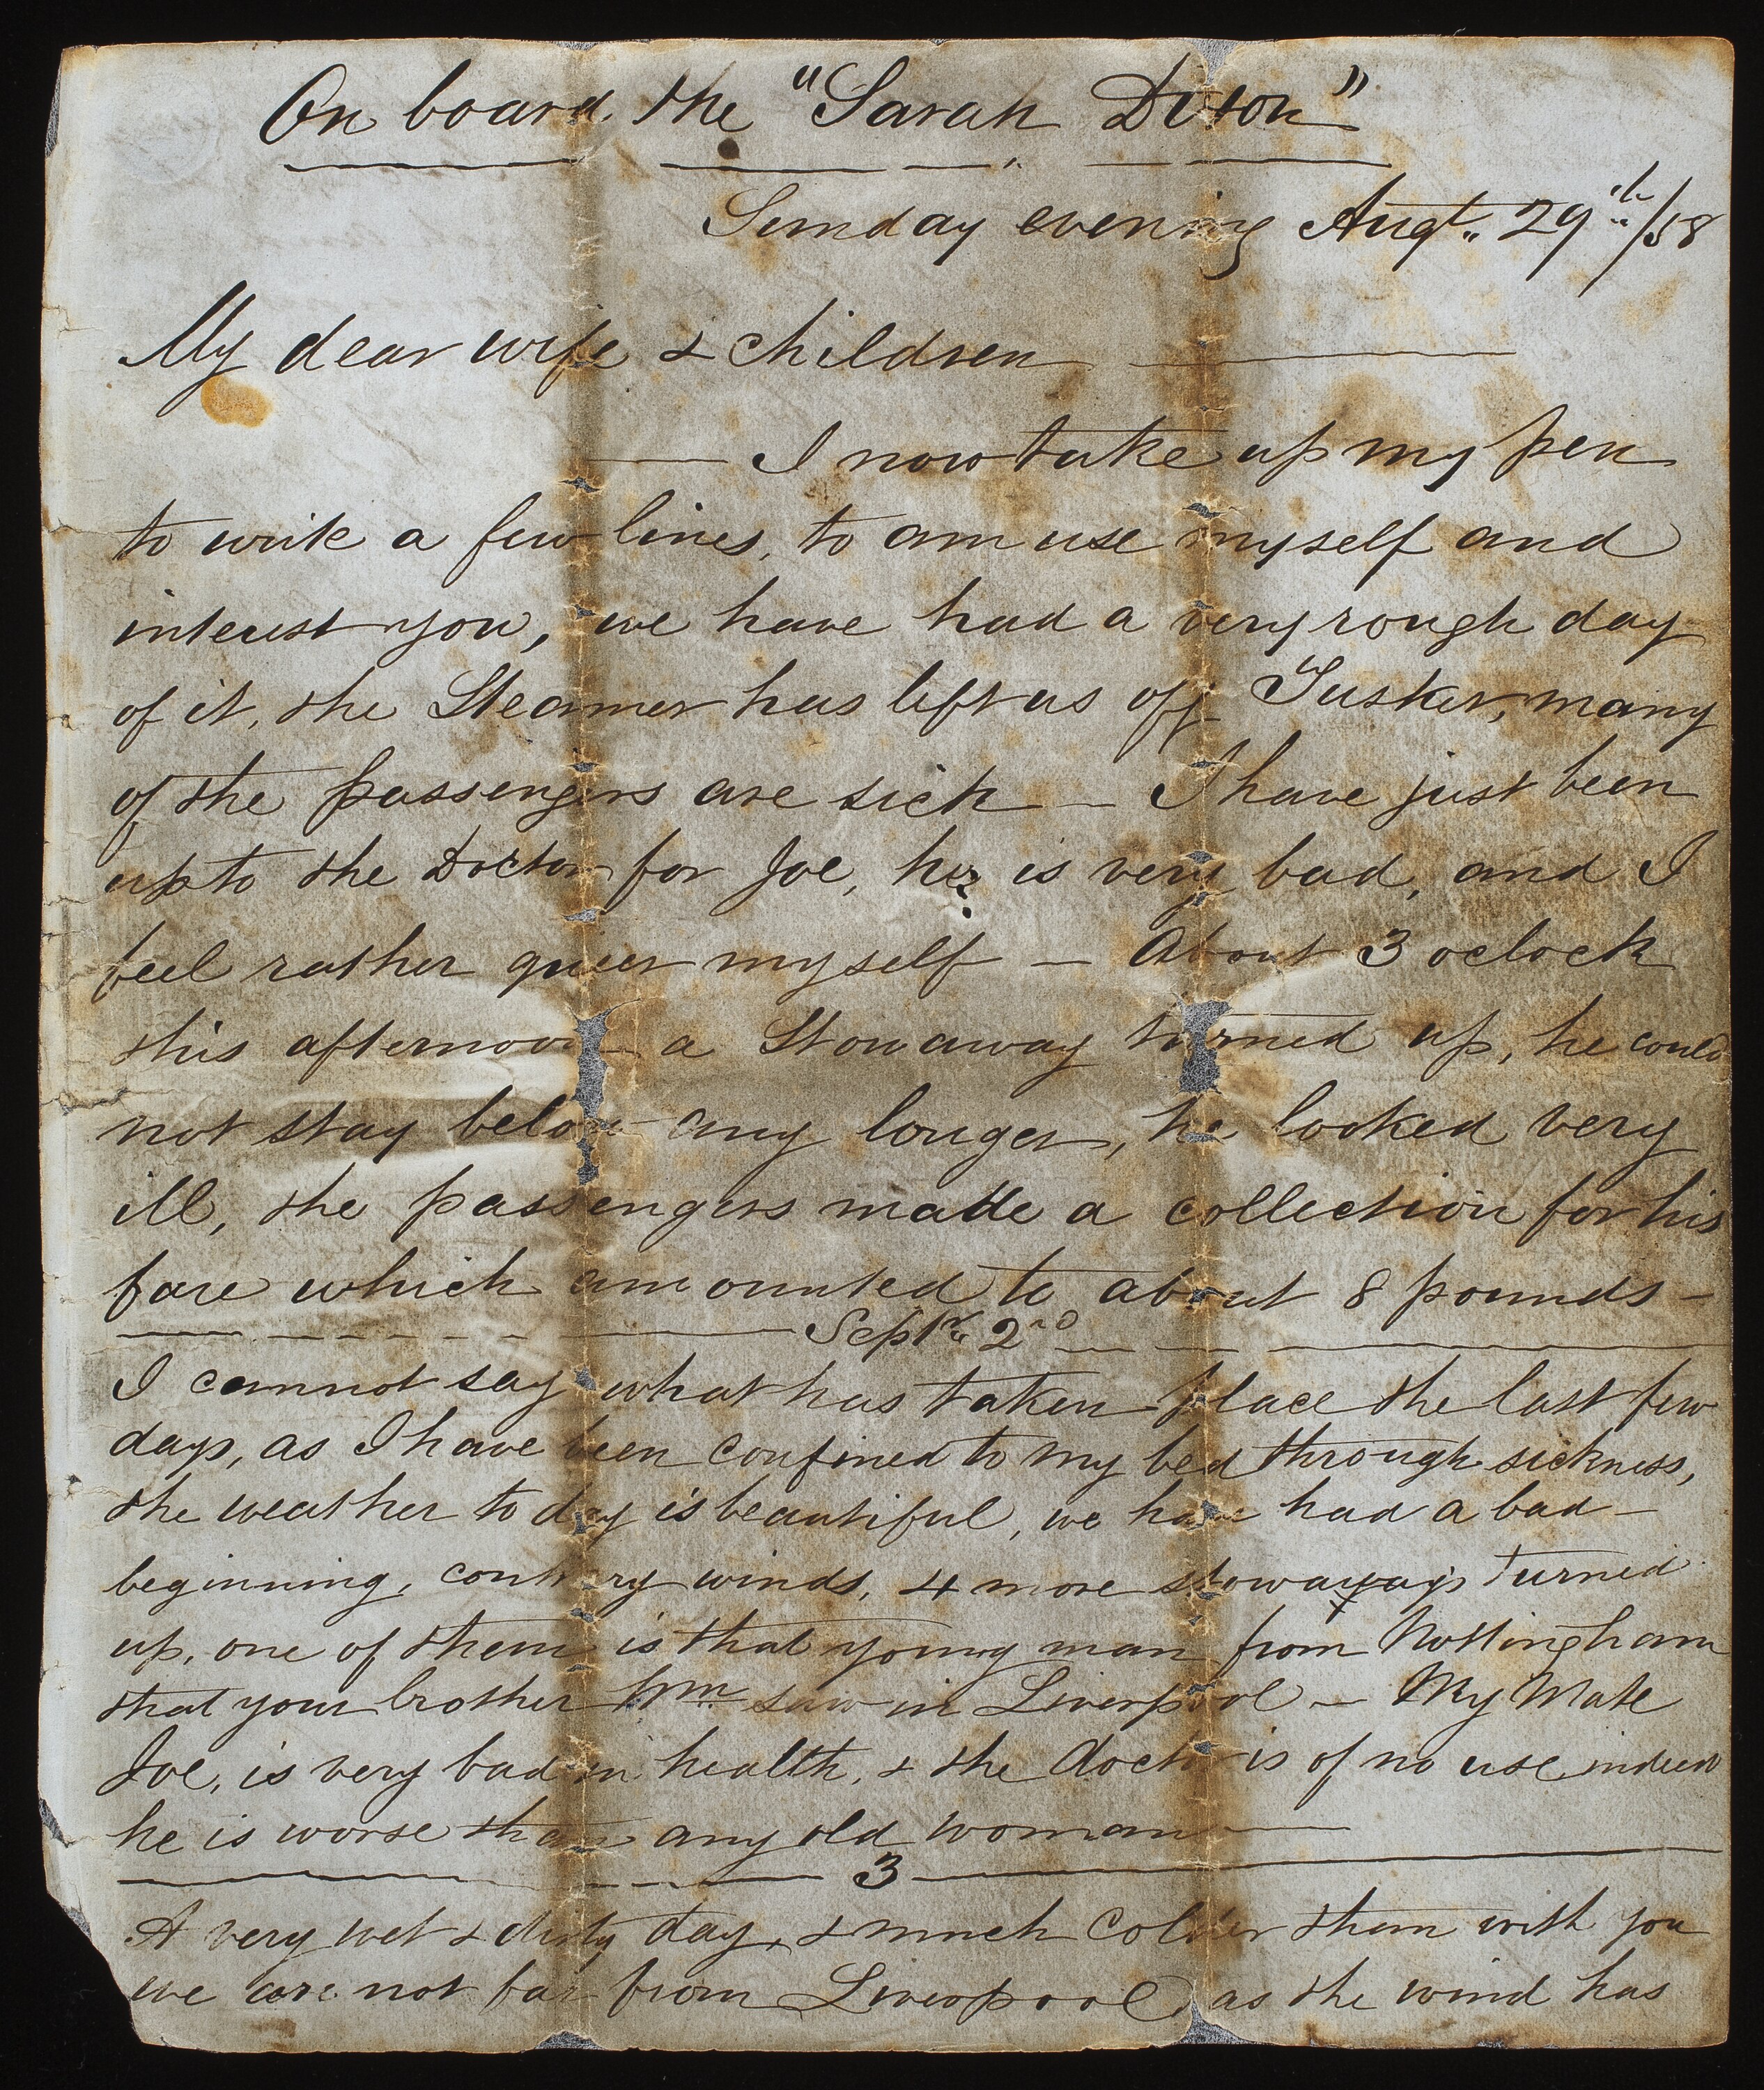 On board, the "Sarah Dixon"
Sunday evening Augt. 29th/58
My dear wife & children
I now take up my pen
to write a few lines, to amuse myself and
interest you, we have had a very rough day
of it, the Steamer has left us off Tusker, many
of the passengers are sick — I have just been
up to the Doctor for Joe, he is very bad, and I
feel rather queer myself — About 3 oclock
this afternoon a Stowaway turned up, he could
not stay below any longer, he looked very
ill, the passengers made a collection for his
fare which amounted to about 8 pounds —
Septr. 2nd
I cannot say what has taken place the last few
days, as I have been confined to my bed through sickness,
the weather to day is beautiful, we have had a bad
beginning, contrary winds, 4 more stowaways turned
up, one of them is that young man from Nottingham
that your brother Wm saw in Liverpool — My Mate
Joe, is very bad in health, & the doctor is of no use indeed
he is worse than any old woman —
3
A very wet & dirty day, & much colder than with you
we are not far from Liverpool, as the wind has